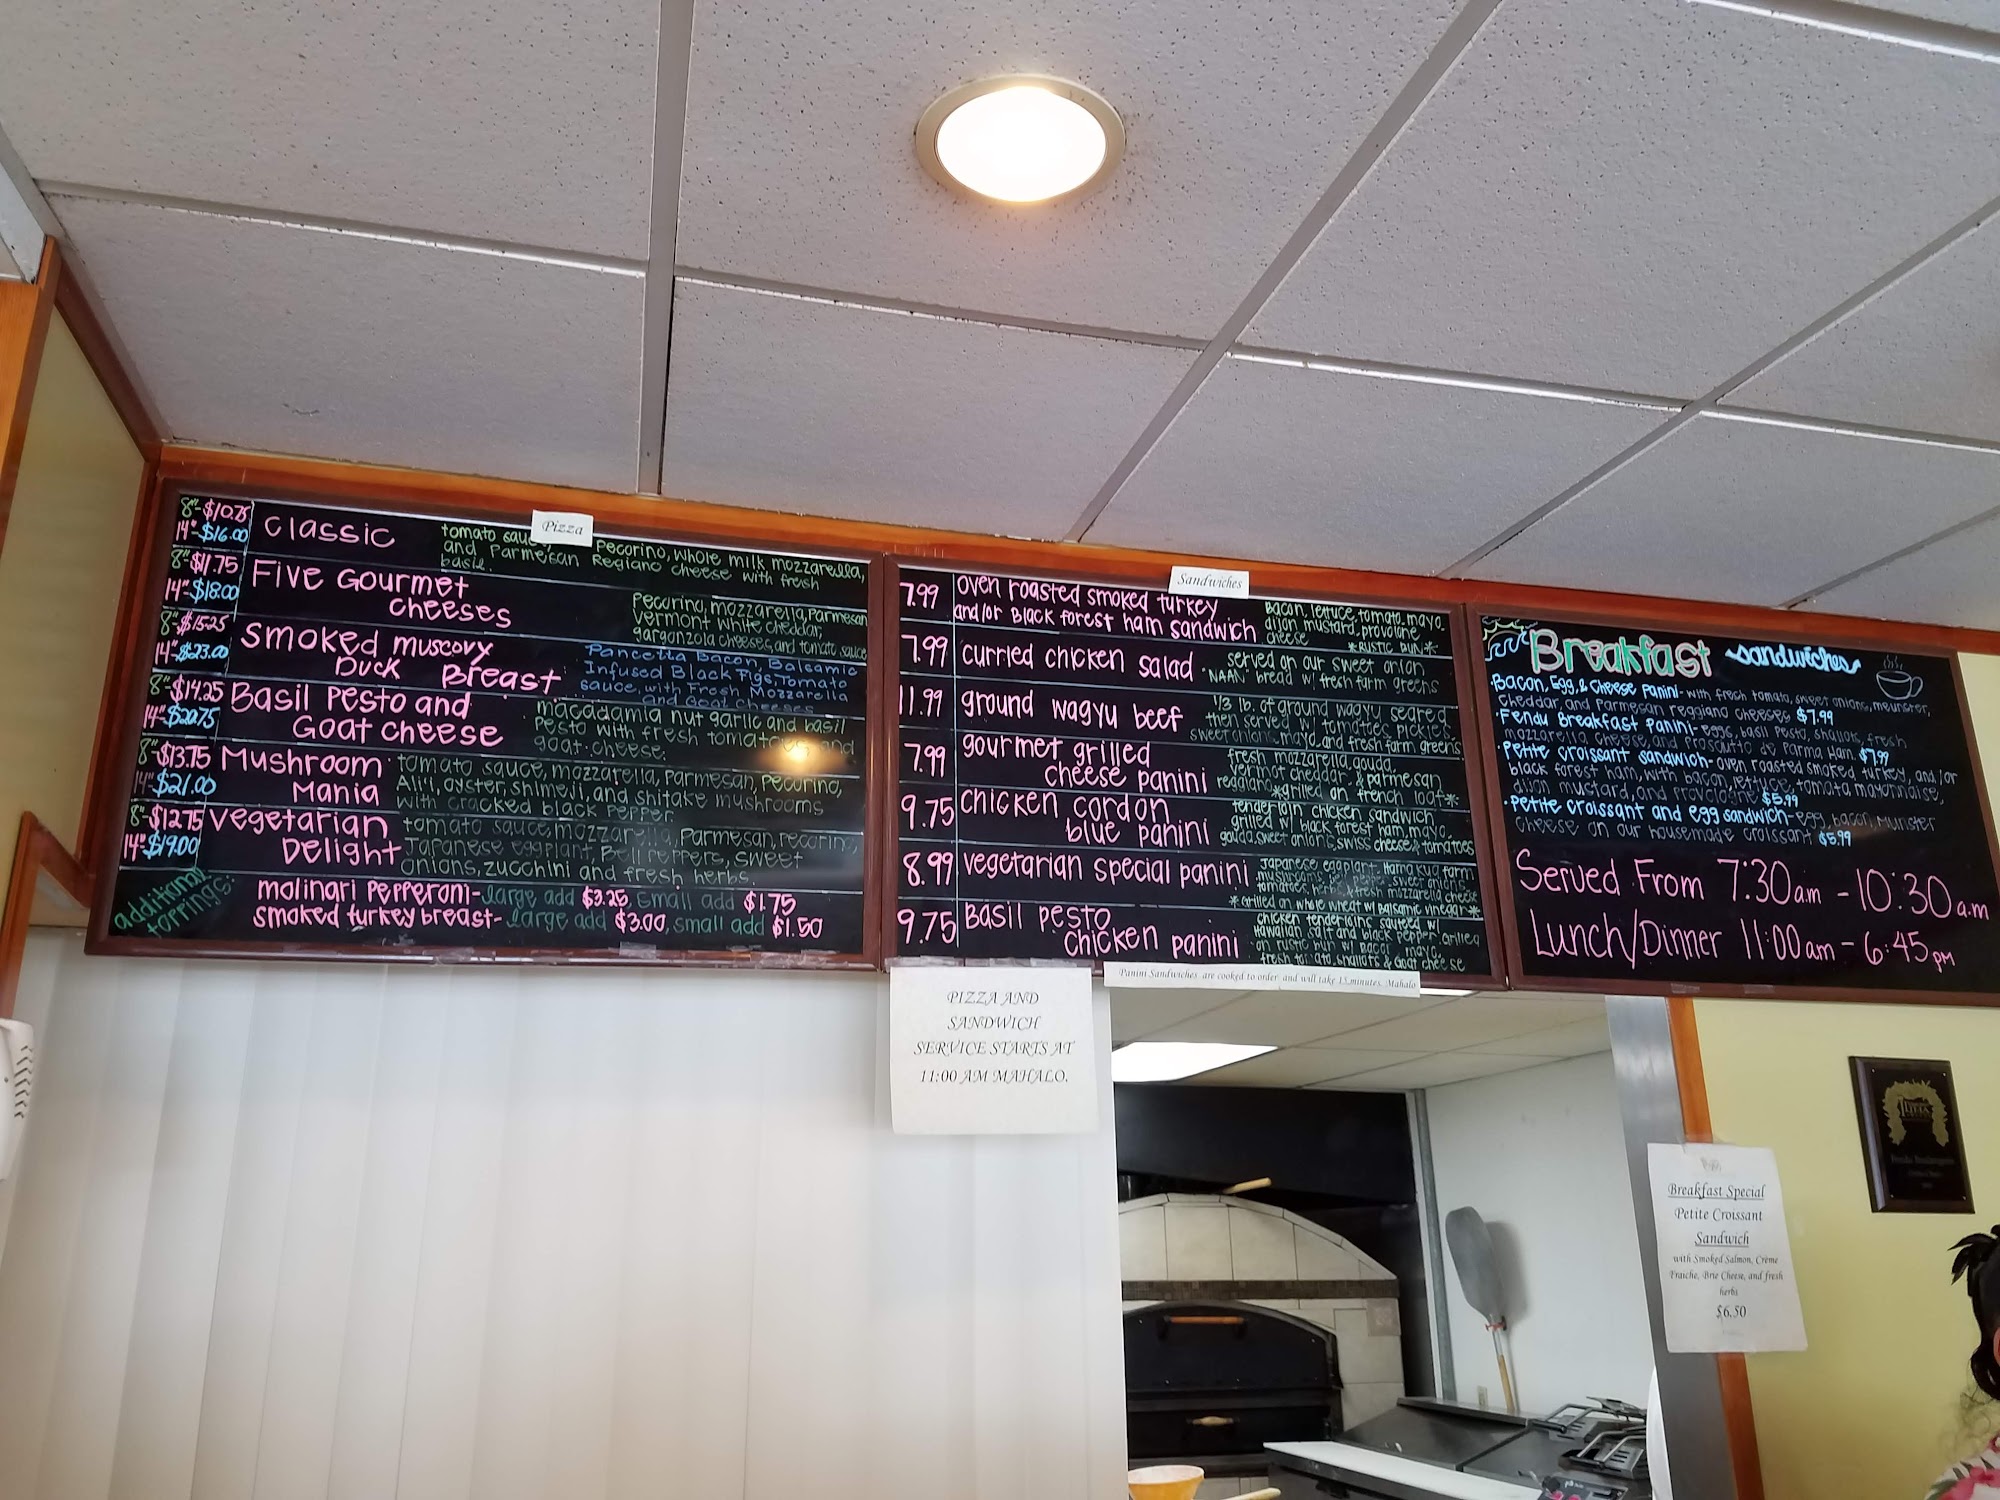 Pizza
8"-$10.75
14"-$16.00
classic
tomato sauce, Pecorino, whole milk mozzarella,
and Parmesan Regiano cheese with fresh
basil.
8"-$11.75
14"-$18.00
Five Gourmet
cheeses
Pecorino, mozzarella, Parmesan
vermont white cheddar,
gargonzola cheeses, and tomato sauce
8"-$15.25
14"-$23.00
smoked muscovy
Duck Breast
Pancetta Bacon, Balsamic
Infused Black Figs, Tomato
sauce, with Fresh Mozzarella
and Goat cheeses
8"-$14.25
14"-$20.75
Basil Pesto and
Goat cheese
macadamia nut garlic and basil
Pesto with fresh tomatoes and
goat cheese.
8"-$13.75
14"-$21.00
Mushroom
Mania
tomato sauce, mozzarella, parmesan, pecorino,
Ali'i, oyster, shimeji, and shitake mushrooms
with cracked black pepper
8"-$12.75
14"-$19.00
vegetarian
Delight
tomato sauce, mozzarella, Parmesan, pecorino,
Japanese eggplant, Bell peppers, sweet
onions, zucchini and fresh herbs.
additional
toppings:
molinari Pepperoni-large add $3.25, small add $1.75
smoked turkey breast-large add $3.00, small add $1.50
Sandwiches
7.99
oven roasted smoked turkey
and/or Black forest ham sandwich
Bacon, lettuce, tomato, mayo,
dijon mustard, provolone
cheese
*RUSTIC BUN*
7.99
curried chicken salad
served on our sweet onion
"NAAN" bread w/ fresh farm greens
11.99
ground wagyu beef
1/3 lb. of ground wagyu seared
then served w/ tomatoes, pickles,
sweet onions, mayo, and fresh farm greens
7.99
gourmet grilled
cheese panini
fresh mozzarella, gouda,
vermot cheddar, & parmesan
reggiano *grilled on french loaf*
9.75
chicken cordon
blue panini
tenderloin chicken sandwich
grilled w/ black forest ham, mayo,
gouda, sweet onions, swiss cheese & tomatoes
8.99
vegetarian special panini
Japanese eggplant, Hamakua farm
mushrooms, sweet onions,
tomatoes, herbs & fresh mozzarella cheese
*Grilled on whole wheat w/ Balsamic vinegar*
9.75
Basil pesto
chicken panini
chicken tenderloins sauteed w/
Hawaiian salt and black pepper grilled
on rustic bun w/ Bacon, mayo,
fresh tomato, shallots & Goat cheese
Breakfast sandwiches
•Bacon, Egg, & cheese Panini-with fresh tomato, sweet onions, meunster,
cheddar, and Parmesan reggiano cheeses $7.99
•Fendu Breakfast Panini-eggs, basil pesto, shallots, fresh
mozzarella cheese, and Prosciutto de Parma Ham. $7.99
•Petite croissant sandwich-oven roasted smoked turkey, and/or
black forest ham, with bacon, lettuce, tomato, mayonnaise,
dijon mustard, and provolone $5.99
•Petite croissant and egg sandwich-egg, bacon, munster
cheese on our housemade croissant $5.99
Served From 7:30am - 10:30am
Lunch/Dinner 11:00am - 6:45pm
Panini Sandwiches are cooked to order and will take 15 minutes. Mahalo
PIZZA AND
SANDWICH
SERVICE STARTS AT
11:00 AM MAHALO.
Breakfast Special
Petite Croissant
Sandwich
with Smoked Salmon, Crème
Fraiche, Brie Cheese, and fresh
herbs
$6.50
'ILIMA
Fendu Boulangerie